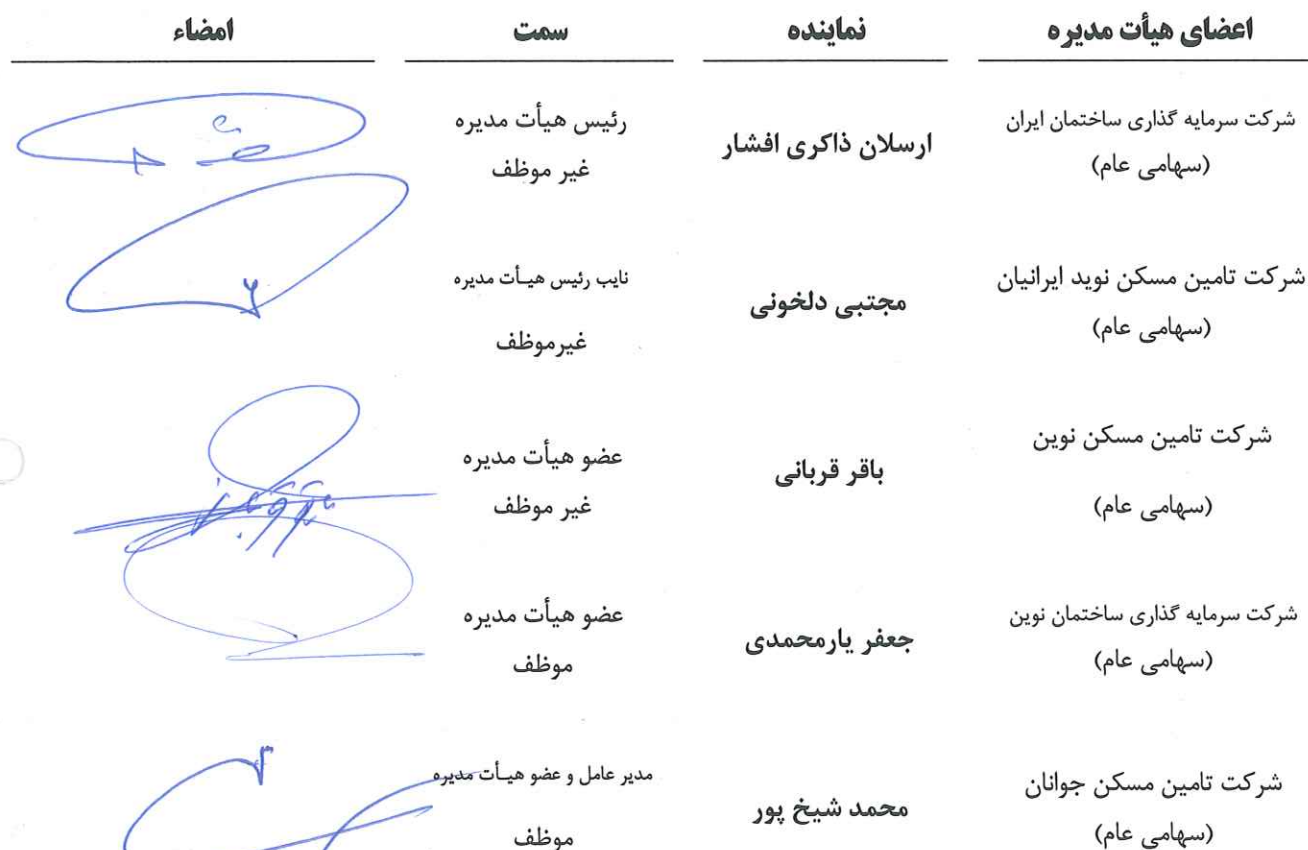 اعضای هیأت مدیره نماینده سمت امضاء
شرکت سرمایه گذاری ساختمان ایران
(سهامی عام)
ارسلان ذاکری افشار
رئیس هیأت مدیره
غیر موظف
شرکت تامین مسکن نوید ایرانیان
(سهامی عام)
مجتبی دلخونی
نایب رئیس هیـأت مدیره
غیرموظف
شرکت تامین مسکن نوین
(سهامی عام)
باقر قربانی
عضو هیأت مدیره
غیر موظف
شرکت سرمایه گذاری ساختمان نوین
(سهامی عام)
جعفر یارمحمدی
عضو هیأت مدیره
موظف
شرکت تامین مسکن جوانان
(سهامی عام)
محمد شیخ پور
مدیر عامل و عضو هیـأت مدیره
موظف